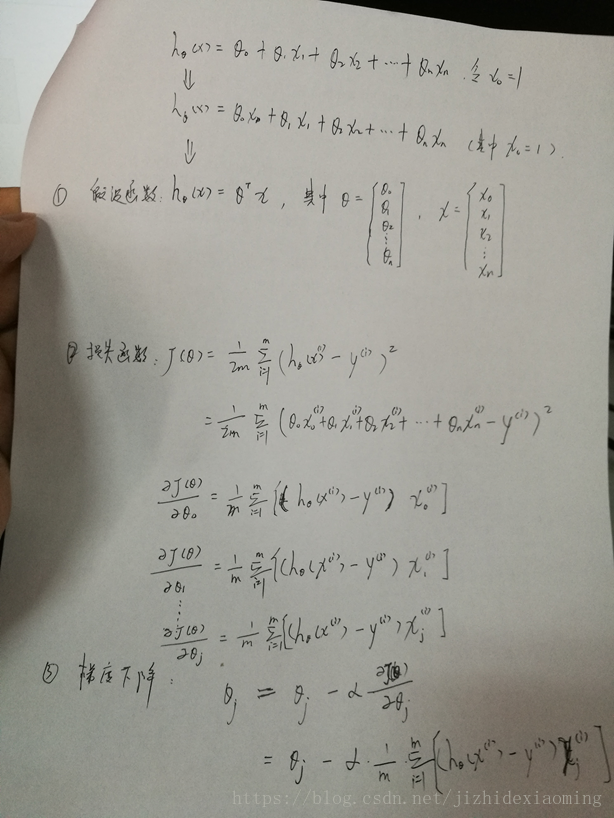 hθ(x) = θ₀ + θ₁x₁ + θ₂x₂ + ⋯ + θₙxₙ . 令 x₀=1
⇓
hθ(x) = θ₀x₀ + θ₁x₁ + θ₂x₂ + ⋯ + θₙxₙ (其中 x₀=1).
⇓
① 假设函数: hθ(x) = θᵀx , 其中 θ = [θ₀ θ₁ θ₂ ⋮ θₙ] , x = [x₀ x₁ x₂ ⋮ xₙ]
② 损失函数: J(θ) = 1/2m ∑_{i=1}^{m} (hθ(x⁽ⁱ⁾) − y⁽ⁱ⁾)²
= 1/2m ∑_{i=1}^{m} (θ₀x₀⁽ⁱ⁾ + θ₁x₁⁽ⁱ⁾ + θ₂x₂⁽ⁱ⁾ + ⋯ + θₙxₙ⁽ⁱ⁾ − y⁽ⁱ⁾)²
∂J(θ)/∂θ₀ = 1/m ∑_{i=1}^{m} [(hθ(x⁽ⁱ⁾) − y⁽ⁱ⁾) x₀⁽ⁱ⁾]
∂J(θ)/∂θ₁ = 1/m ∑_{i=1}^{m} [(hθ(x⁽ⁱ⁾) − y⁽ⁱ⁾) x₁⁽ⁱ⁾]
⋮
∂J(θ)/∂θⱼ = 1/m ∑_{i=1}^{m} [(hθ(x⁽ⁱ⁾) − y⁽ⁱ⁾) xⱼ⁽ⁱ⁾]
③ 梯度下降:
θⱼ = θⱼ − α ∂J(θ)/∂θⱼ
= θⱼ − α · 1/m · ∑_{i=1}^{m} [(hθ(x⁽ⁱ⁾) − y⁽ⁱ⁾) xⱼ⁽ⁱ⁾]
https://blog.csdn.net/jizhidexiaoming